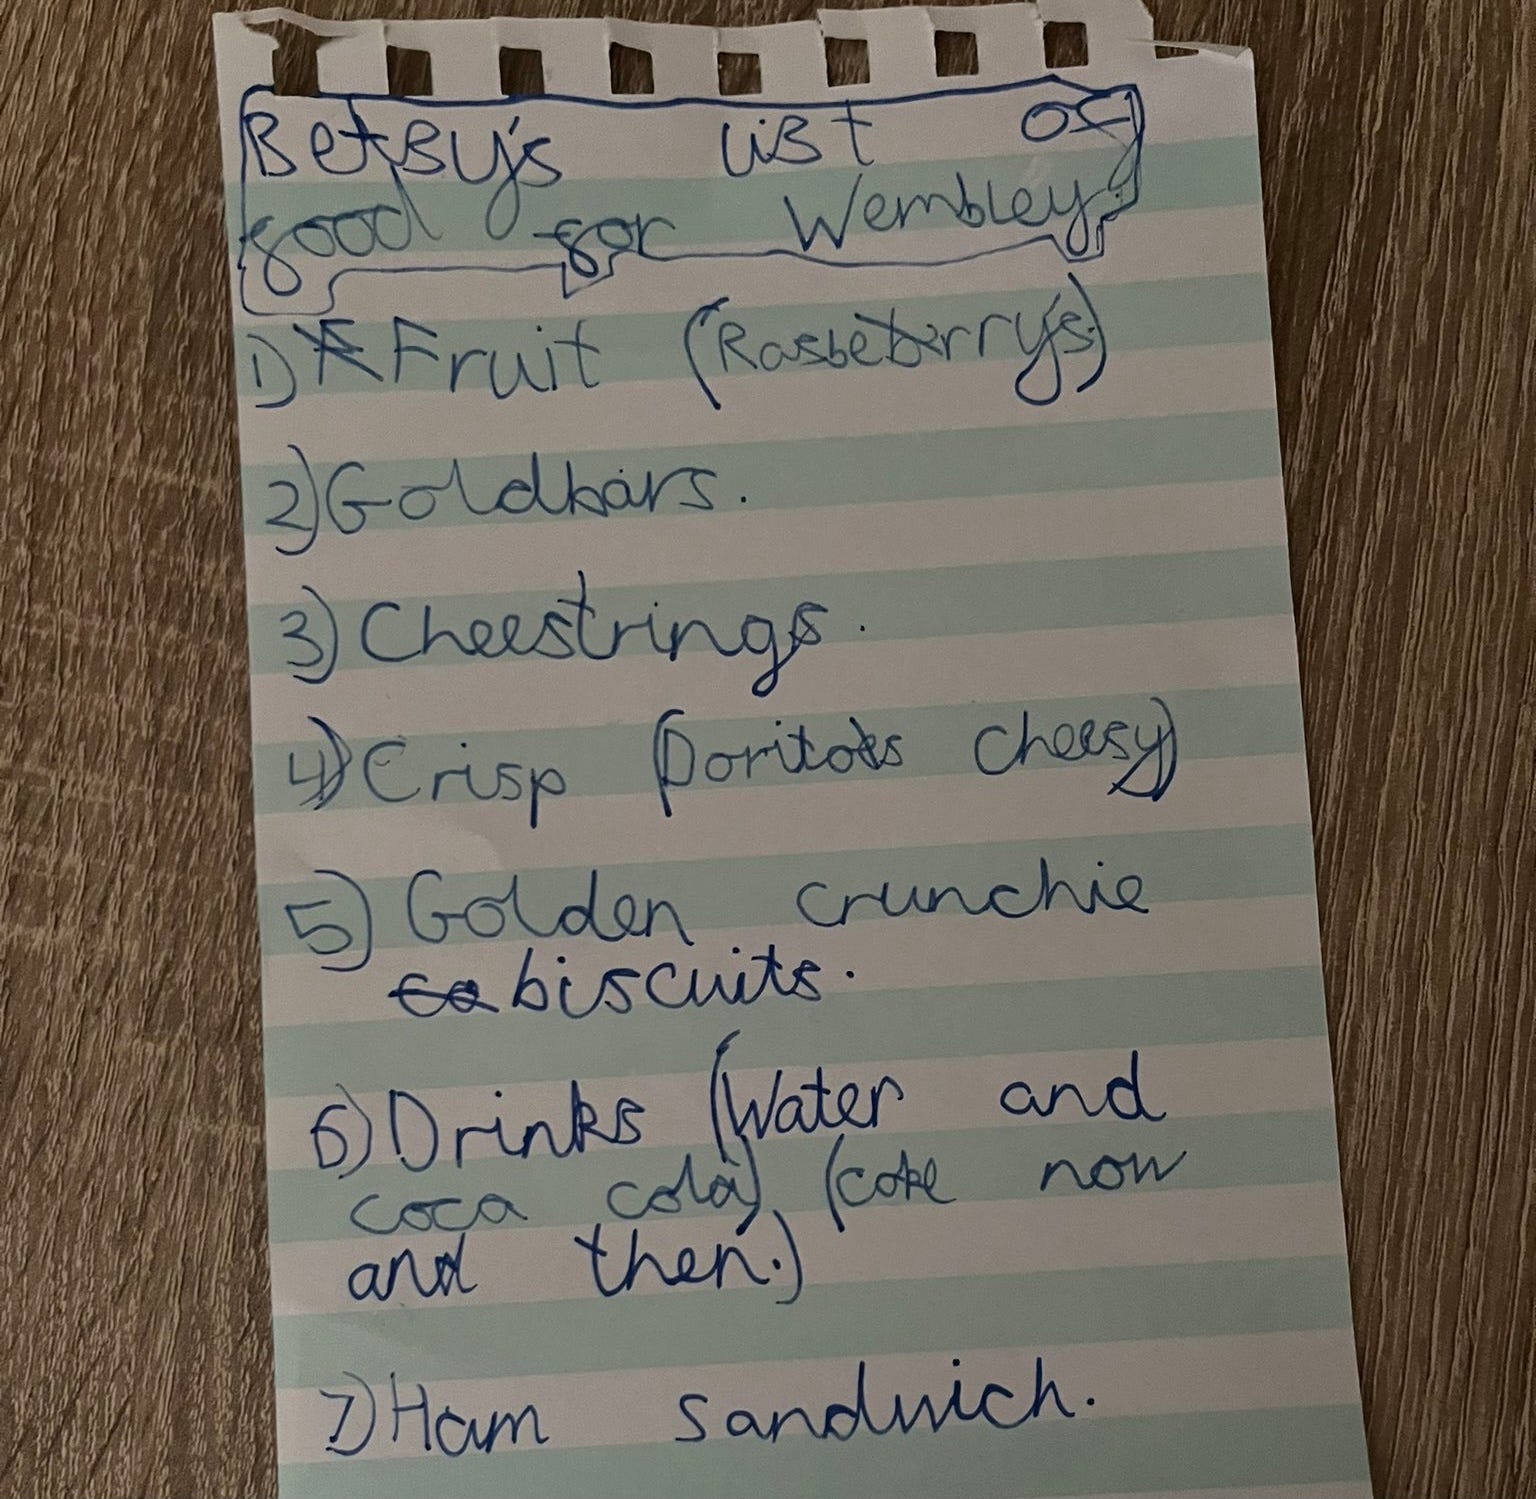 Betsy's list of
good for Wembley
1) Fruit (Rasbeberry's)
2) Goldbars.
3) Cheestrings.
4) Crisp (Doritots cheesy)
5) Golden crunchie
biscuits.
6) Drinks (Water and
coca cola) (coke now
and then.)
7) Ham sandwich.